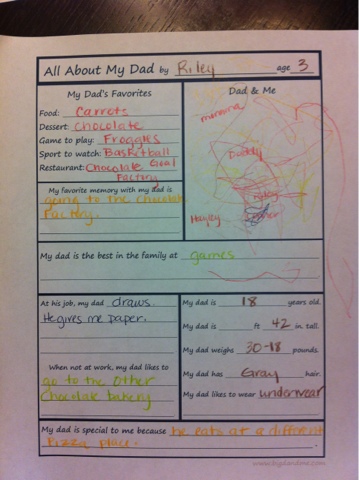 All About My Dad by Riley age 3
My Dad's Favorites
Food: Carrots
Dessert: Chocolate
Game to play: Froggies
Sport to watch: Basketball Goal
Restaurant: Chocolate Factory
My favorite memory with my dad is
going to the chocolate
Factory.
Dad & Me
momma
Daddy
Riley
Hayley
My dad is the best in the family at games
At his job, my dad draws.
He gives me paper.
When not at work, my dad likes to
go to the other
chocolate bakery
My dad is 18 years old.
My dad is ft 42 in. tall.
My dad weighs 30-18 pounds.
My dad has Gray hair.
My dad likes to wear underwear
My dad is special to me because he eats at a different
Pizza place.
www.bigdandme.com